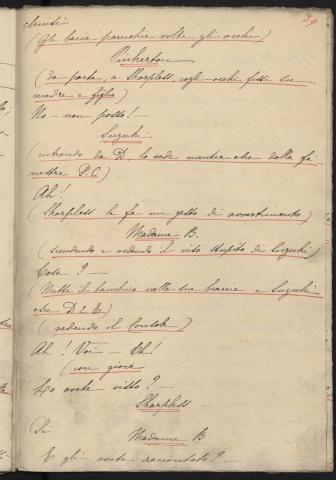 39
chiusi
(Gli bacia parecchie volte gli occhi)
Pinkerton
(da parte, a Sharpless, cogli occhi fissi su
madre e figlio)
No - non posso! -
Suzuki.
(entrando da D, lo vede mentre che dalla fi
nestra P. C.)
Ah!
(Sharpless le fa un gesto di avvertimento)
Madame B.
(scendendo e vedendo il viso stupito di Suzuki)
Cosa? -
(Mette il bambino nelle sue braccia e Suzuki
esce D 2 E)
(vedendo il Console)
Ah! Voi - Eh!
(con gioia
Lo avete visto? -
Sharpless
Si
Madame B
E gli avete raccontato? -